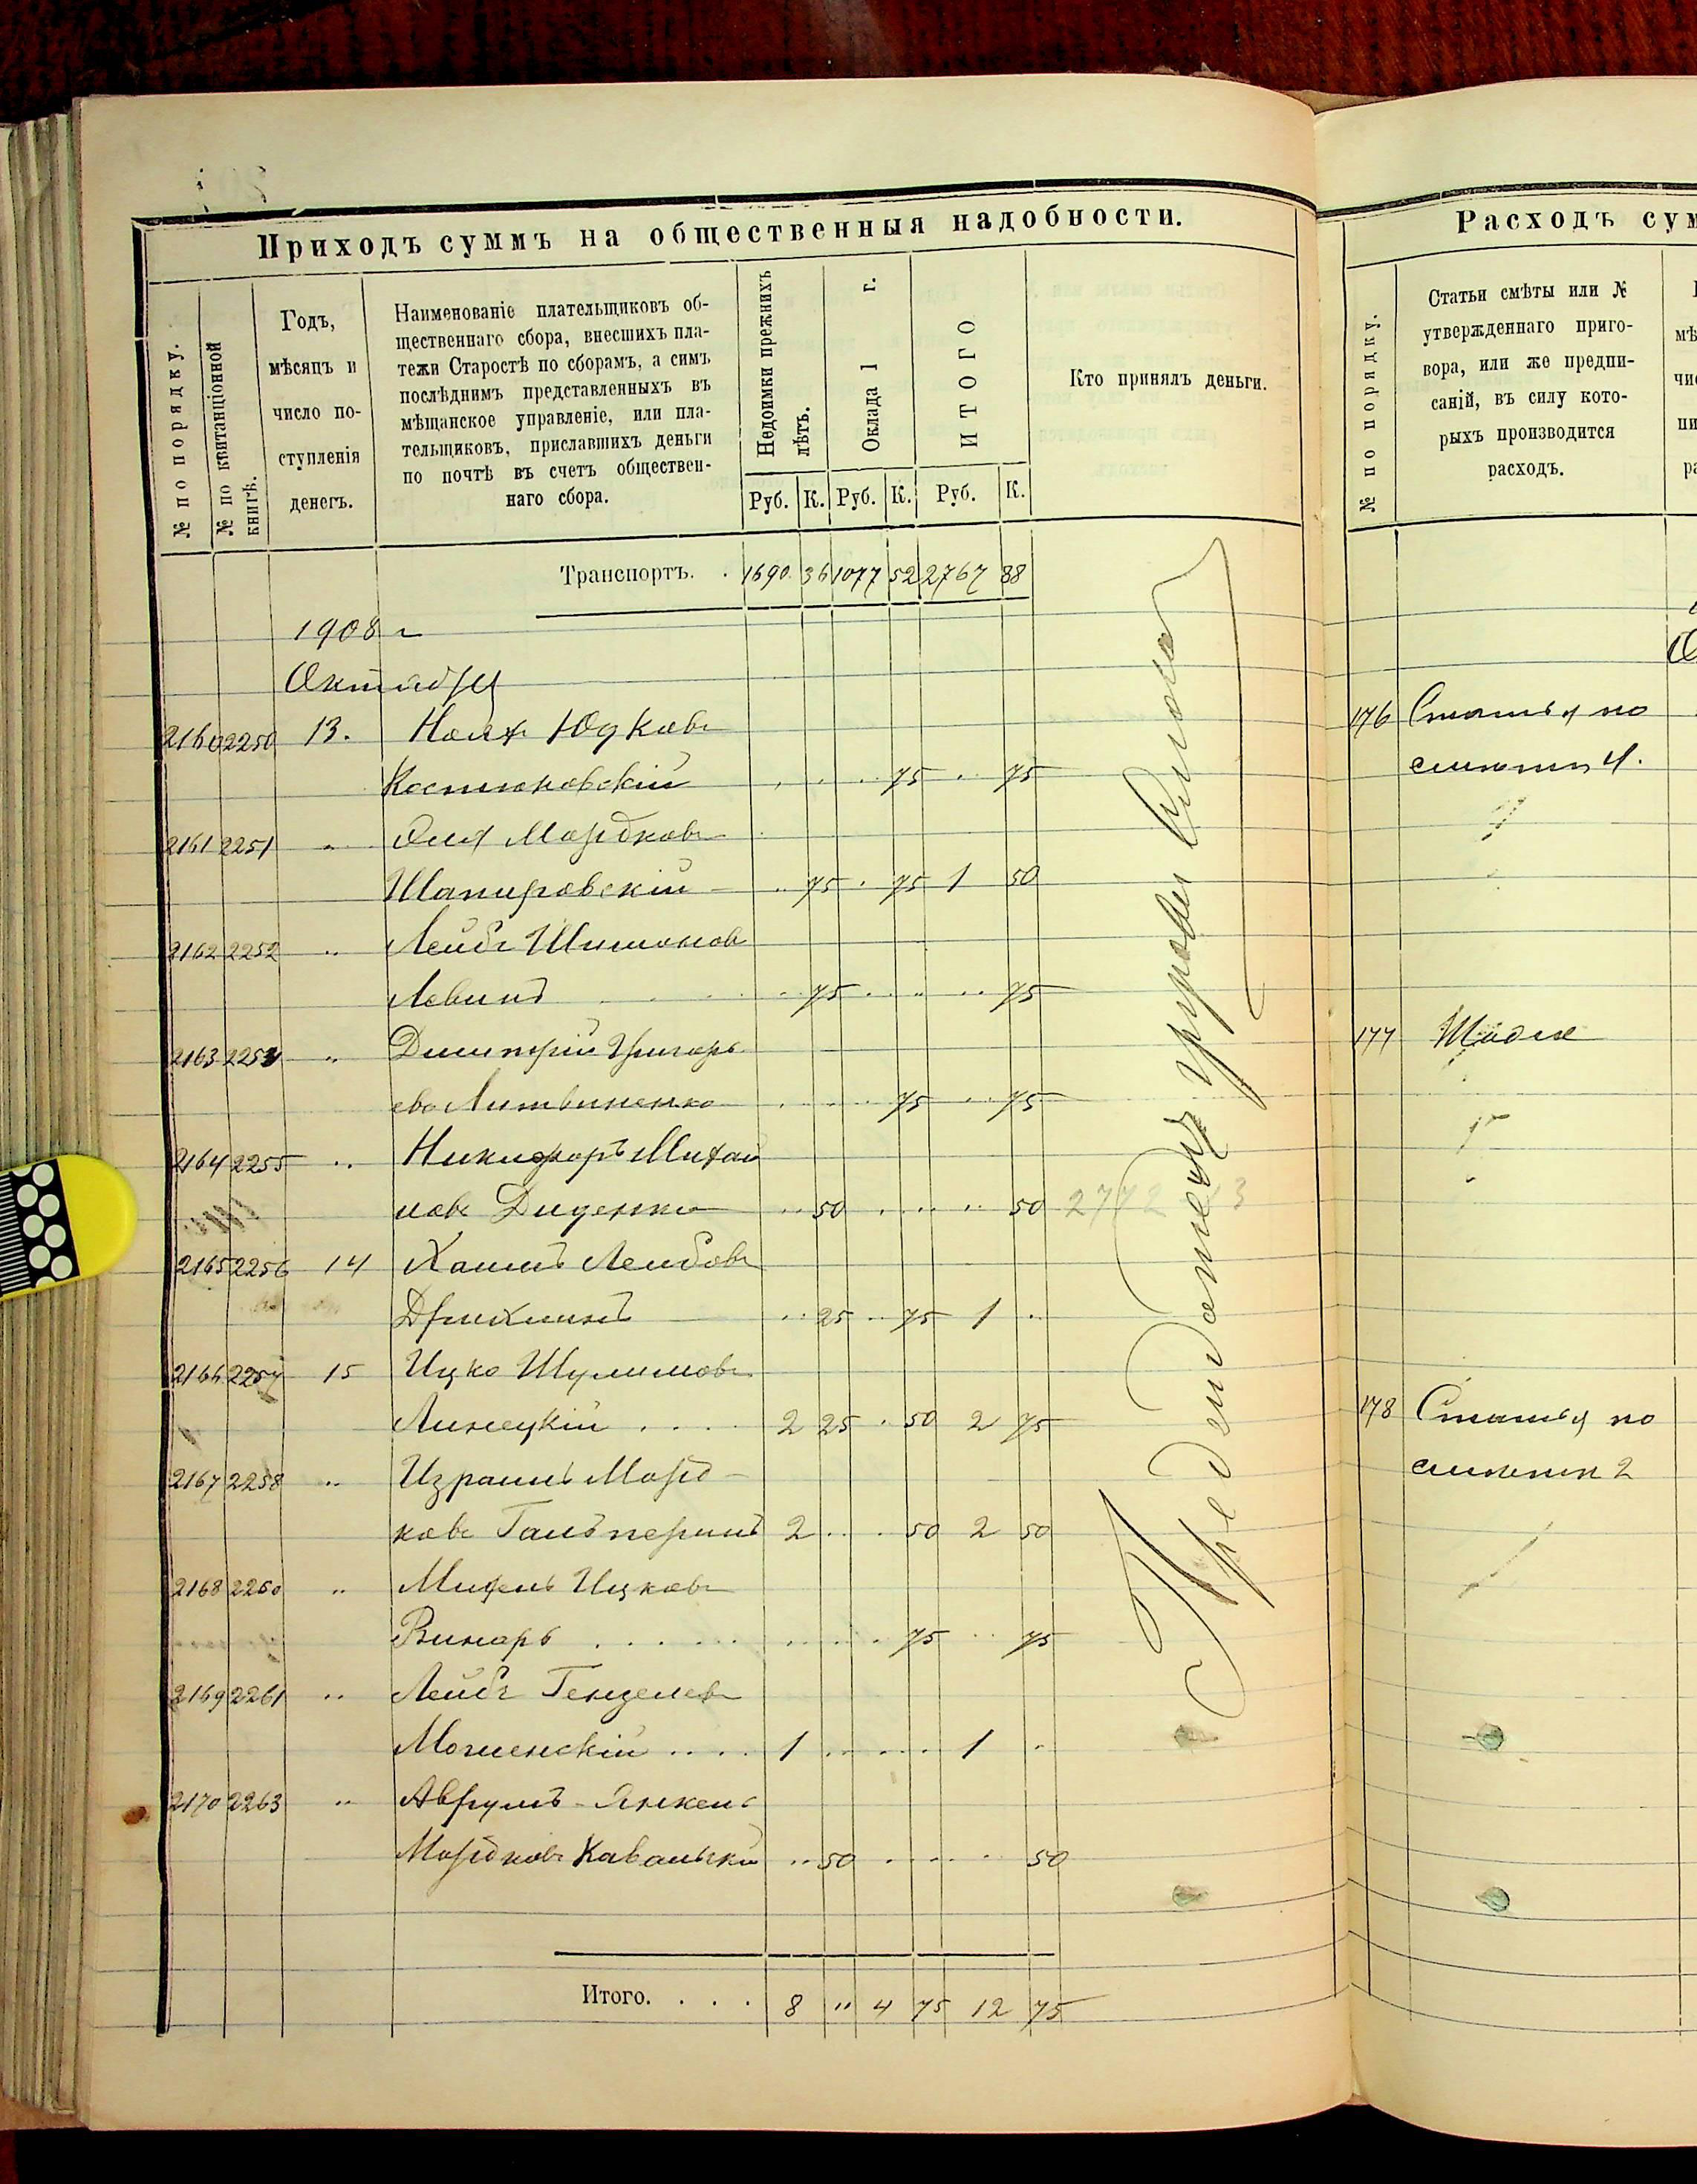 Приходъ суммъ на общественныя надобности.
№ по порядку.
№ по квитанціонной книгѣ.
Годъ,
мѣсяцъ и
число по-
ступленія
денегъ.
Наименованіе плательщиковъ об-
щественнаго сбора, внесшихъ пла-
тежи Старостѣ по сборамъ, а симъ
послѣднимъ представленныхъ въ
мѣщанское управленіе, или пла-
тельщиковъ, приславшихъ деньги
по почтѣ въ счетъ обществен-
наго сбора.
Недоимки прежнихъ
лѣтъ.
Оклада 1 г.
ИТОГО
Кто принялъ деньги.
Руб. К. Руб. К. Руб. К.
Транспортъ. . 1690 36 1077 52 2767 88
1908 г
Октября
2160 2250 13. Юдковъ
Костюковскій . . . 75 . . 75
2161 2251 " Мордковъ
Шапировскій .. 75 . 75 1 50
2162 2252 " Лейбъ Шимонов
Левинъ .. 75 . .. .. 75
2163 225 " Дмитрій Григорь
евъ Литвиненко . . . 75 .. 75
2164 2255 " Никифоръ Михай
ловъ Диденко .. 50 . . . .. 50
2165 2256 14 Хаимъ Лейбовъ
.. 25 .. 75 1 ..
2166 2257 15 Ицко Шулимовъ
Линецкій . . . . 2 25 . 50 2 75
2167 2258 " Израиль Морд-
ковъ Гальперинъ 2 .. . 50 2 50
2168 2260 " Михель Ицковъ
Винаръ . . . . . 75 .. 75
2169 2261 " Лейбъ Генделевъ
1 .. . . . 1 ..
2170 2263 " Аврумъ-Янкель
Мордковъ .. 50 . . . . 50
Итого. . . . 8 " 4 75 12 75
2772
Расходъ сум
№ по порядку.
Статьи смѣты или №
утвержденнаго приго-
вора, или же предпи-
саній, въ силу кото-
рыхъ производится
расходъ.
176 Статья по
смѣтѣ 4.
177 Тоже
178 Статья по
2